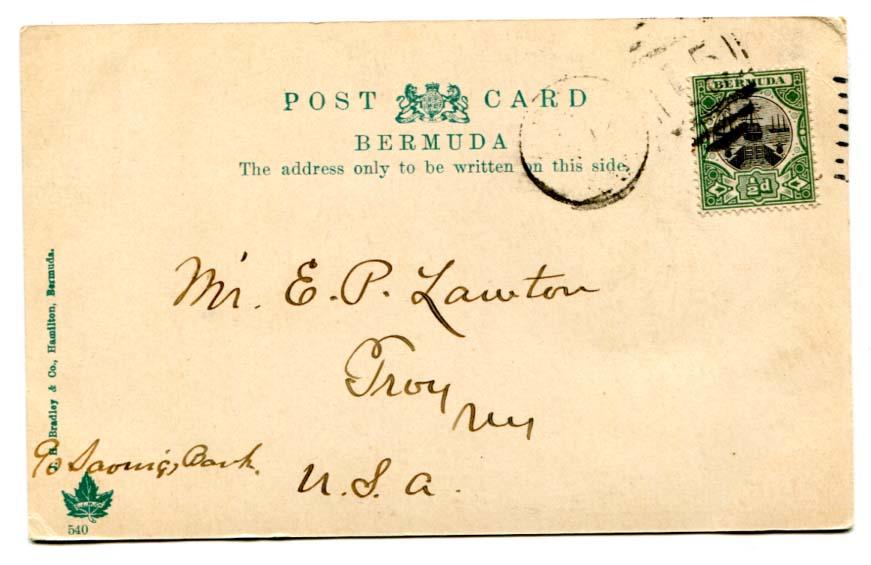 POST CARD
BERMUDA
The address only to be written on this side.
BERMUDA
½d
Mr. E. P. Lawton
Troy
NY
U.S.A.
c/o Savings Bank.
J. H. Bradley & Co., Hamilton, Bermuda.
540